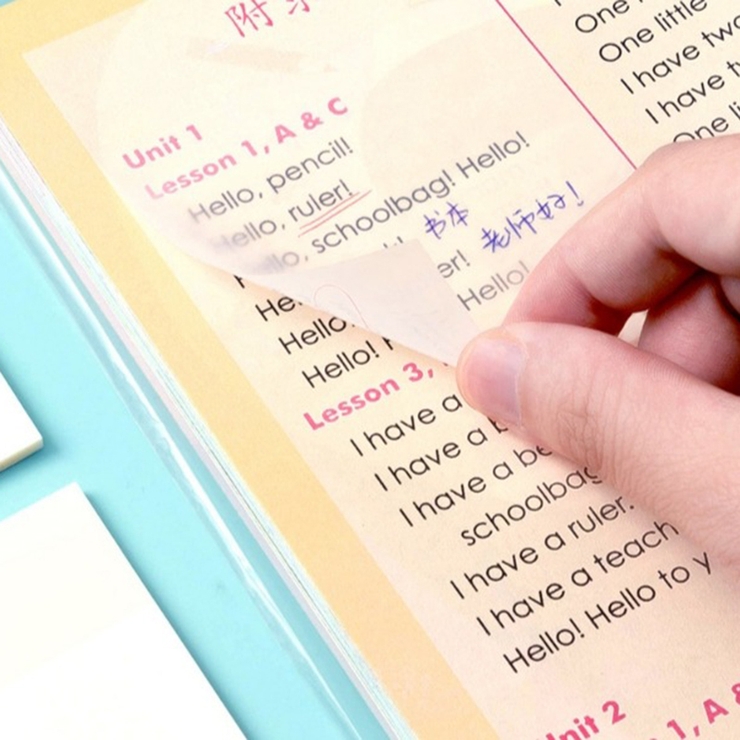 附录
Unit 1
Lesson 1, A & C
Hello, pencil!
Hello, ruler!
Hello, schoolbag! Hello!
书本
er! 老师好!
Hello!
He
Hello
Hello!
Lesson 3,
I have a
I have a
I have a be
schoolbag
I have a ruler.
I have a teach
Hello! Hello to y
Unit 2
1, A &
One
One little
I have two
I have t
One li